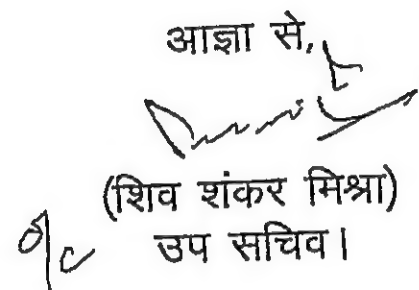 आज्ञा से,
(शिव शंकर मिश्रा)
उप सचिव।